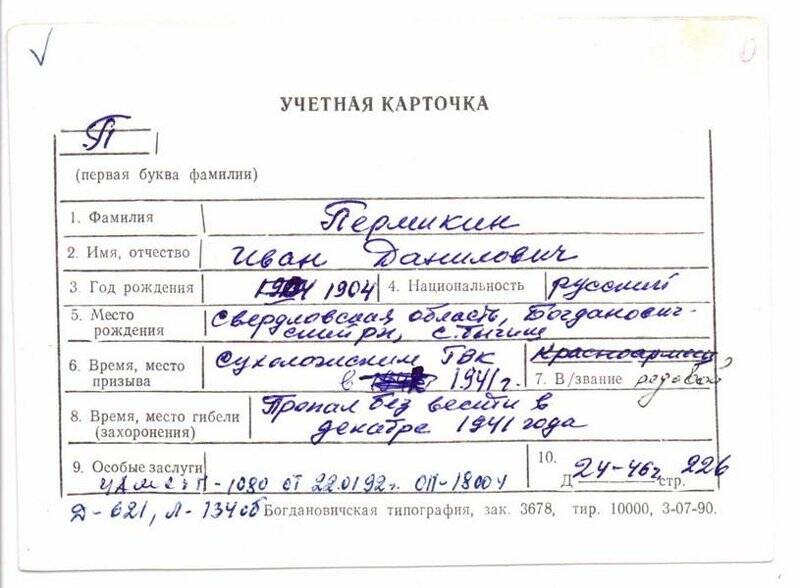 УЧЕТНАЯ КАРТОЧКА
П
(первая буква фамилии)
1. Фамилия Пермикин
2. Имя, отчество Иван Данилович
3. Год рождения 1904 4. Национальность русский
5. Место рождения Свердловская область, Богданович-
ский рн, с.
6. Время, место призыва Сухоложским ГВК
в 1941 г.
Красноармеец
7. В/звание рядовой
8. Время, место гибели (захоронения) Пропал без вести в
декабре 1941 года
9. Особые заслуги
ЦАМО П-1080 от 22.01.92г. ОП-18004
Д-621, Л-134об
10. Д 24-46г стр. 226
Богдановичская типография, зак. 3678, тир. 10000, 3-07-90.